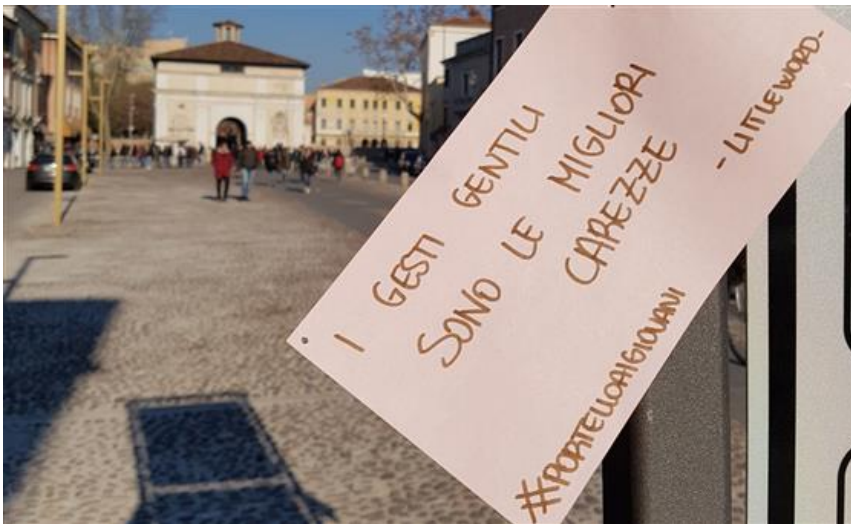 I GESTI GENTILI
SONO LE MIGLIORI
CAREZZE
-LITTLEWORD-
#PORTELLOAIGIOVANI